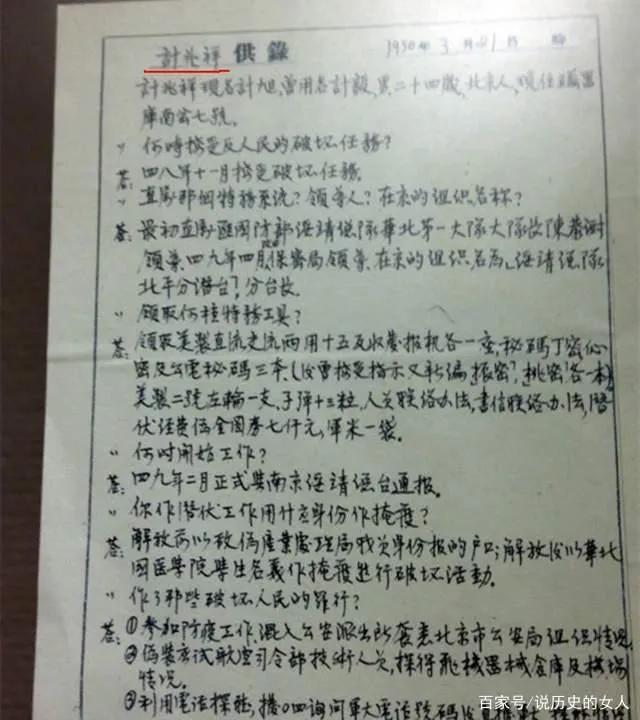 計兆祥 供錄 1950年3月21日 時
計兆祥現名計旭,曾用名計毅,男二十四歲,北京人,現住
庫南巷七號。
" 何時接受反人民的破坏任務?
答: 四八年十一月接受破坏任務。
" 直屬那個特務系統?領導人?在京的组织名称?
答: 最初直屬匪國防部绥靖總隊華北第一大隊大隊长陳恭澍
領導,四九年四月保密局領導,在京的组织名為绥靖總隊
北平分潜台,分台长
" 領取何種特務工具?
答: 領取美製直流交流兩用十五瓦收發报机各一座,秘碼丁
密及公電秘碼三本,(後曾接受指示又新編
美製二號左輪一支,子弹十三粒,人员联络办法,書信联络办法,潜
伏经费伪金圓券七仟元,軍米一袋。
" 何时開始工作?
答: 四九年二月正式與南京绥靖總台通报。
" 你作潜伏工作用什么身份作掩護?
答: 解放前以敌偽產業處理局職员身份报的户口;解放後以華北
國医學院學生名義作掩護進行破坏活動。
" 作了那些破坏人民的罪行?
答: ①参加防疫工作,混入公安派出所套悉北京市公安局组织情况。
②偽裝考試航空司令部技術人員,探得飛機器械倉庫及機場
情况。
③利用電话探聽,搭 四詢问軍大電话號码
百家号/说历史的女人